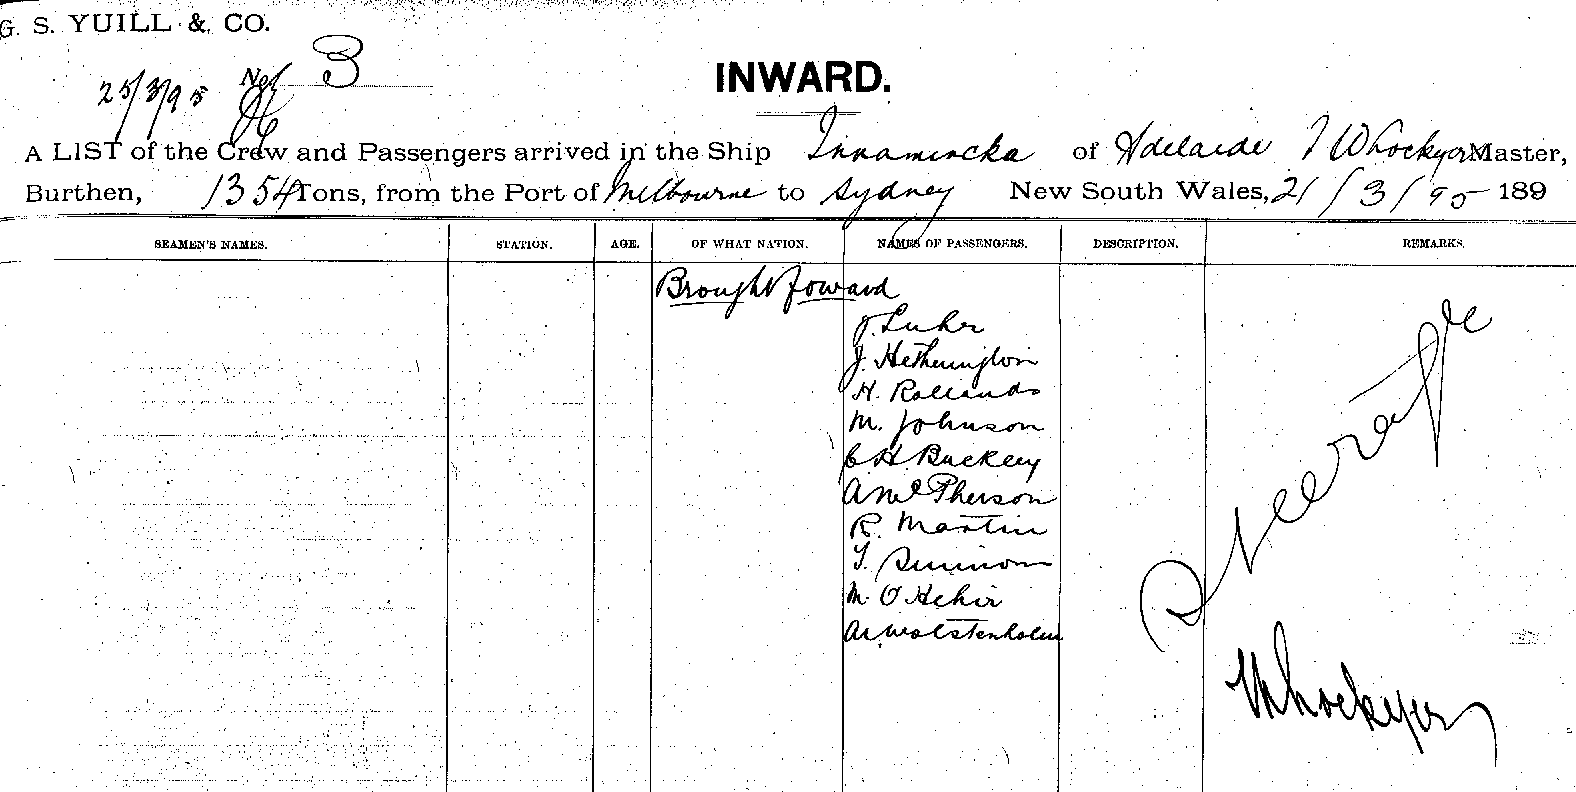 G. S. YUILL & CO.
25/3/95 No. 3
INWARD.
A LIST of the Crew and Passengers arrived in the Ship Innamincka of Adelaide Whockyer Master,
Burthen, 1354 Tons, from the Port of Melbourne to Sydney New South Wales, 21/3/95 189
SEAMEN'S NAMES. STATION. AGE. OF WHAT NATION. NAMES OF PASSENGERS. DESCRIPTION. REMARKS.
Brought Foward
J. Luhr
J. Hetherington
H. Rollands
M. Johnson
C H Buckley
A McPherson
R. Martin
T.
M. O Hehir
A Wolstenholm
Steerage
Whockyer